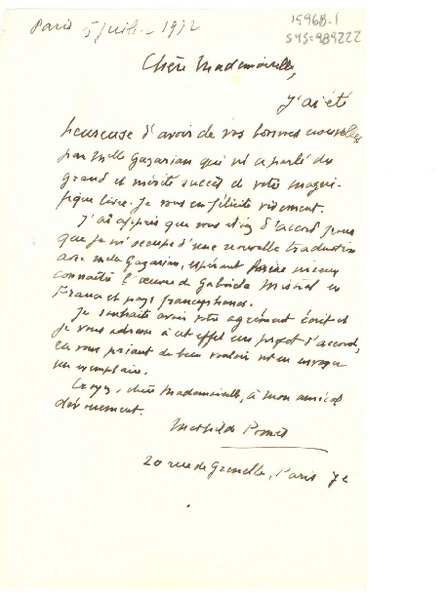 Paris 5 juillet 1972
15968.1
SYS=989222
Chère Mademoiselle,
J'ai été
heureuse d'avoir de vos bonnes nouvelles
par Melle Gazarian qui m'a parlé du
grand et mérité succès de votre magni-
fique livre. Je vous en félicite vivement.
J'ai appris que vous étiez d'accord pour
que je m'occupe d'une nouvelle traduction
avec Melle Gazarian, espérant faire mieux
connaître l'œuvre de Gabriela Mistral en
France et pays francophones.
Je souhaite avoir votre agrément écrit et
je vous adresse à cet effet un projet d'accord,
en vous priant de bien vouloir m'en envoyer
un exemplaire.
Croyez, chère Mademoiselle, à mon amical
dévouement.
Mathilde Pomès
20 rue de Grenelle, Paris 7e